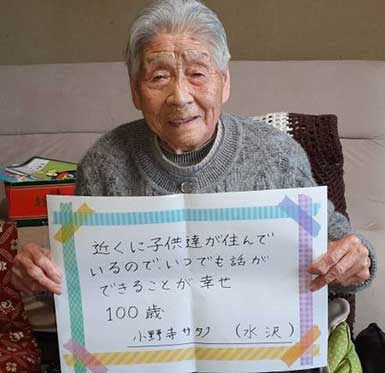 近くに子供達が住んで
いるので、いつでも話が
できることが幸せ
100歳
小野寺サタノ (水沢)